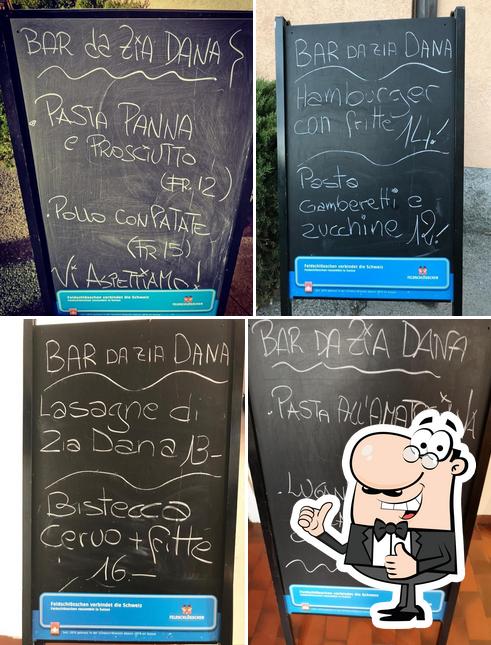 BAR da ZIA DANA
. PASTA PANNA
e PROSCIUTTO
(FR. 12)
. POLLO CON PATATE
(FR. 15)
VI ASPETTIAMO!
Feldschlösschen verbindet die Schweiz
FELDSCHLÖSSCHEN
BAR DA ZIA DANA
Hamburger
con fritte 14.-
Pasta
Gamberetti e
zucchine 12.-
Feldschlösschen verbindet die Schweiz
FELDSCHLÖSSCHEN
BAR DA ZIA DANA
Lasagne di
Zia Dana 13-
Bistecca
Cervo + fritte
16.-
Feldschlösschen verbindet die Schweiz
FELDSCHLÖSSCHEN
BAR DA ZIA DANA
. PASTA